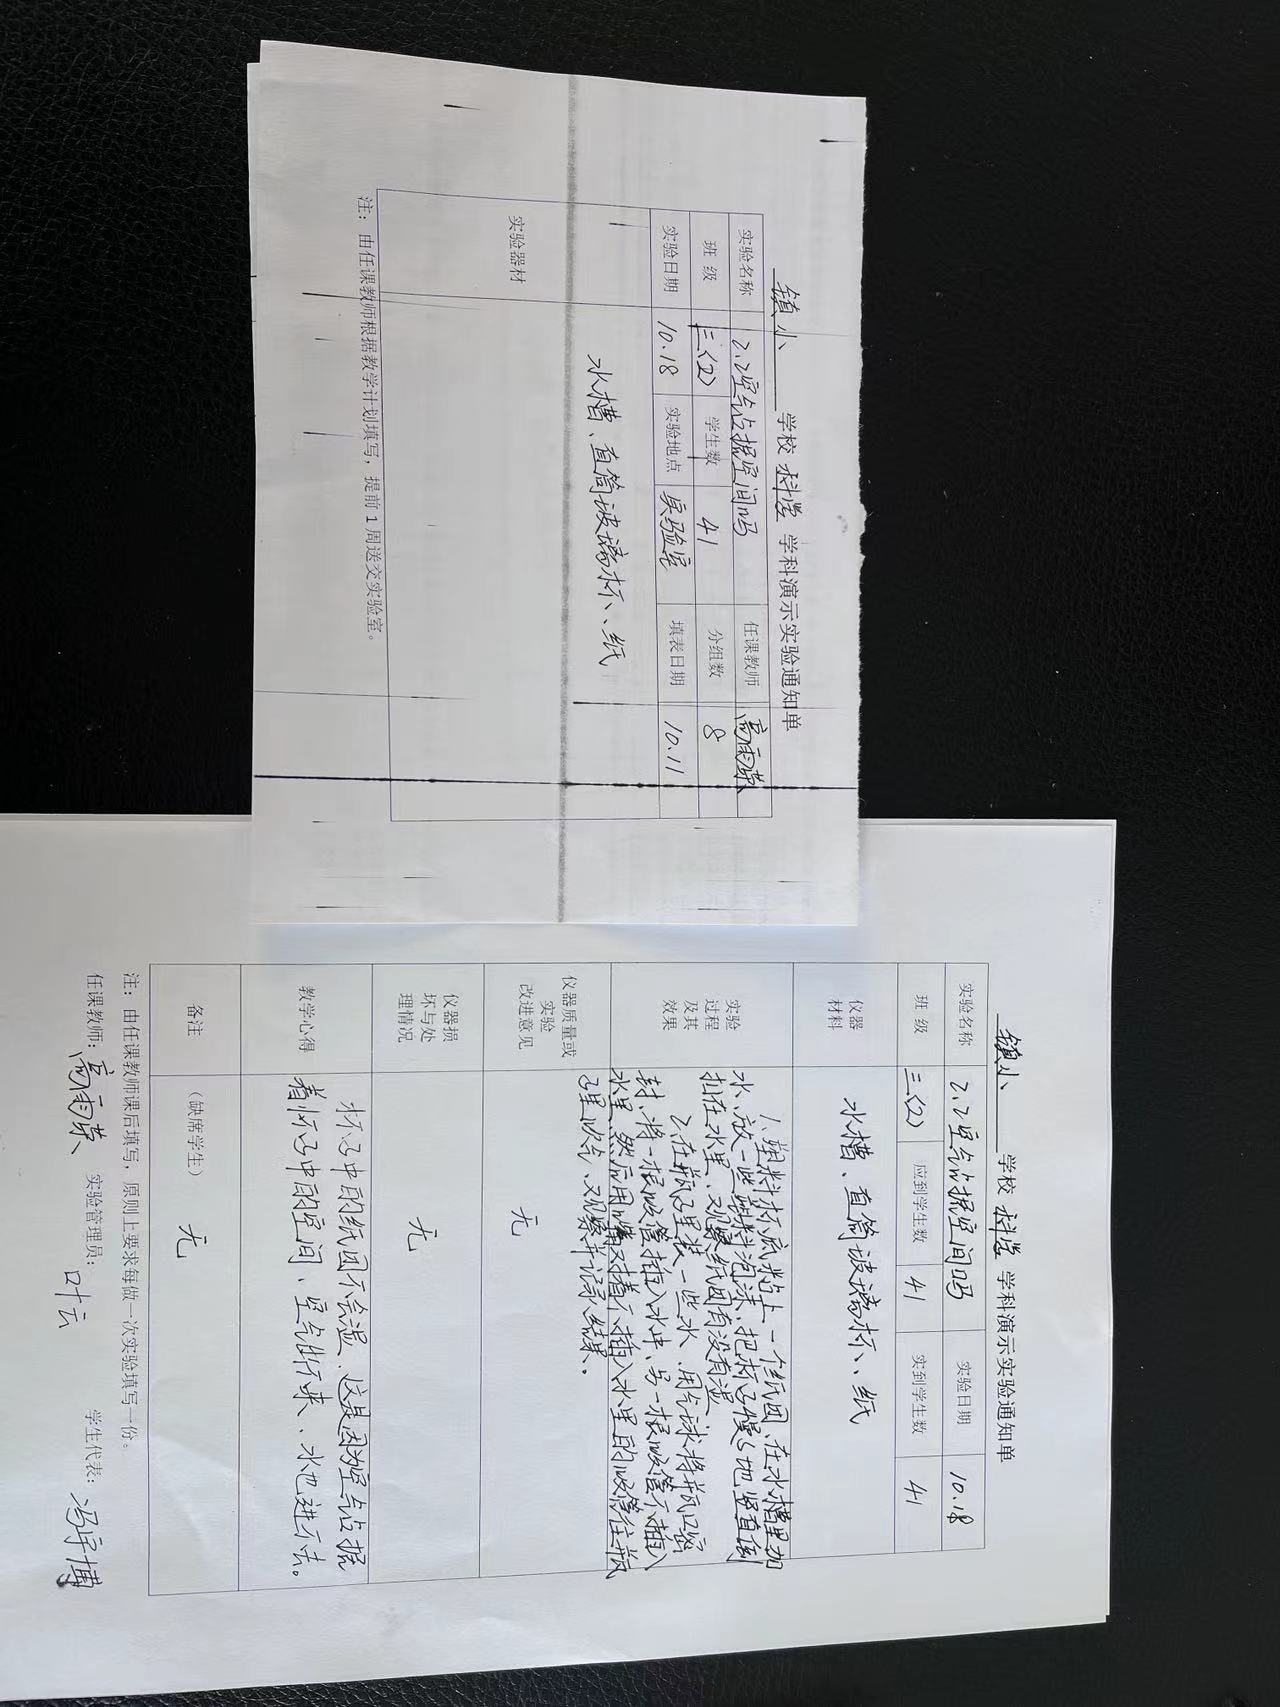 镇小 学校 科学 学科演示实验通知单
实验名称 2.2空气占据空间吗 任课教师 高雨荣
班 级 三(2) 学生数 41 分组数 8
实验日期 10.18 实验地点 实验室 填表日期 10.11
实验器材 水槽、直筒玻璃杯、纸
注:由任课教师根据教学计划填写,提前1周送交实验室。
镇小 学校 科学 学科演示实验通知单
实验名称 2.2空气占据空间吗 实验日期 10.18
班 级 三(2) 应到学生数 41 实到学生数 41
仪器
材料
水槽、直筒玻璃杯、纸
实验
过程
及其
效果
1.塑料杯底粘上一个纸团、在水槽里加
水、放一些塑料泡沫、把杯子慢慢地竖直倒
扣在水里、观察纸团有没有湿
2.在瓶子里装一些水、用气球将瓶口密
封、将一根吸管插入水中、另一根吸管不插入
水里、然后用嘴对着不插入水里的吸管往瓶
子里吹气、观察并记录结果、
仪器质量或
实验
改进意见
无
仪器损
坏与处
理情况
无
教学心得
杯子中的纸团不会湿、这是因为空气占据
着杯子中的空间、空气出不来、水也进不去。
备注
(缺席学生) 无
注:由任课教师课后填写,原则上要求每做一次实验填写一份。
任课教师: 高雨荣 实验管理员: 叶云 学生代表: 冯宇博